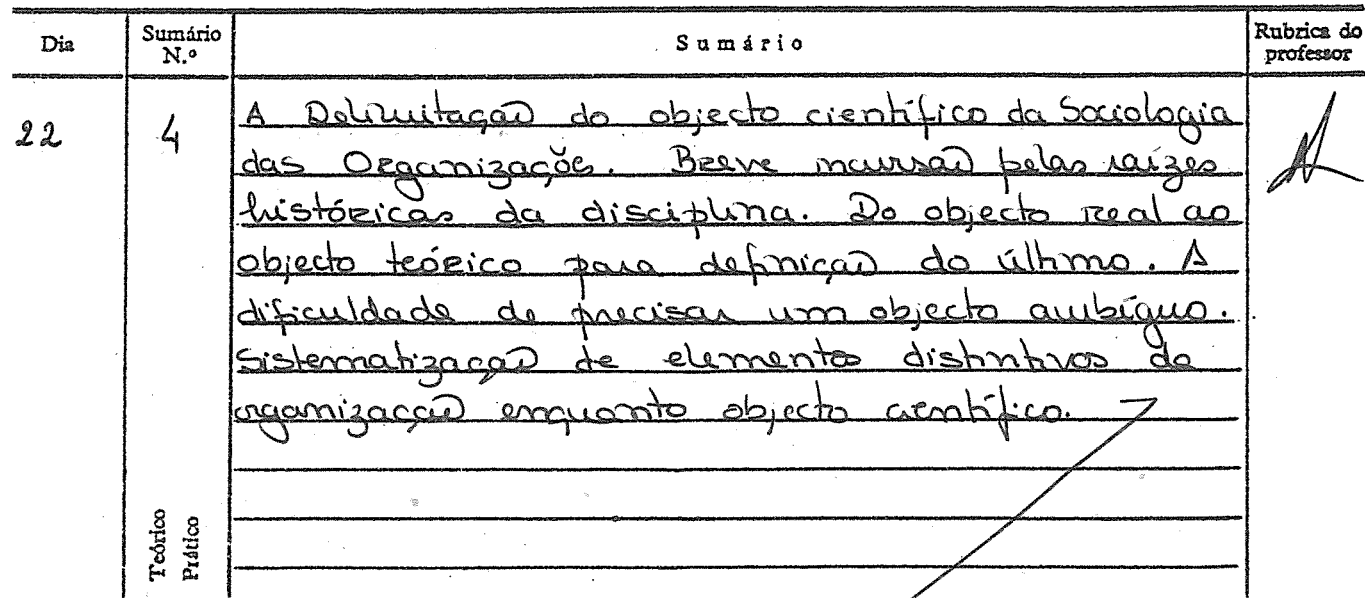 Dia
Sumário N.º
Sumário
Rubrica do professor
22
4
A Delimitação do objecto científico da Sociologia
das Organizações. Breve incursão pelas raízes
históricas da disciplina. Do objecto real ao
objecto teórico para definição do último. A
dificuldade de precisar um objecto ambíguo.
Sistematização de elementos distintivos da
organização enquanto objecto científico.
Teórico
Prático